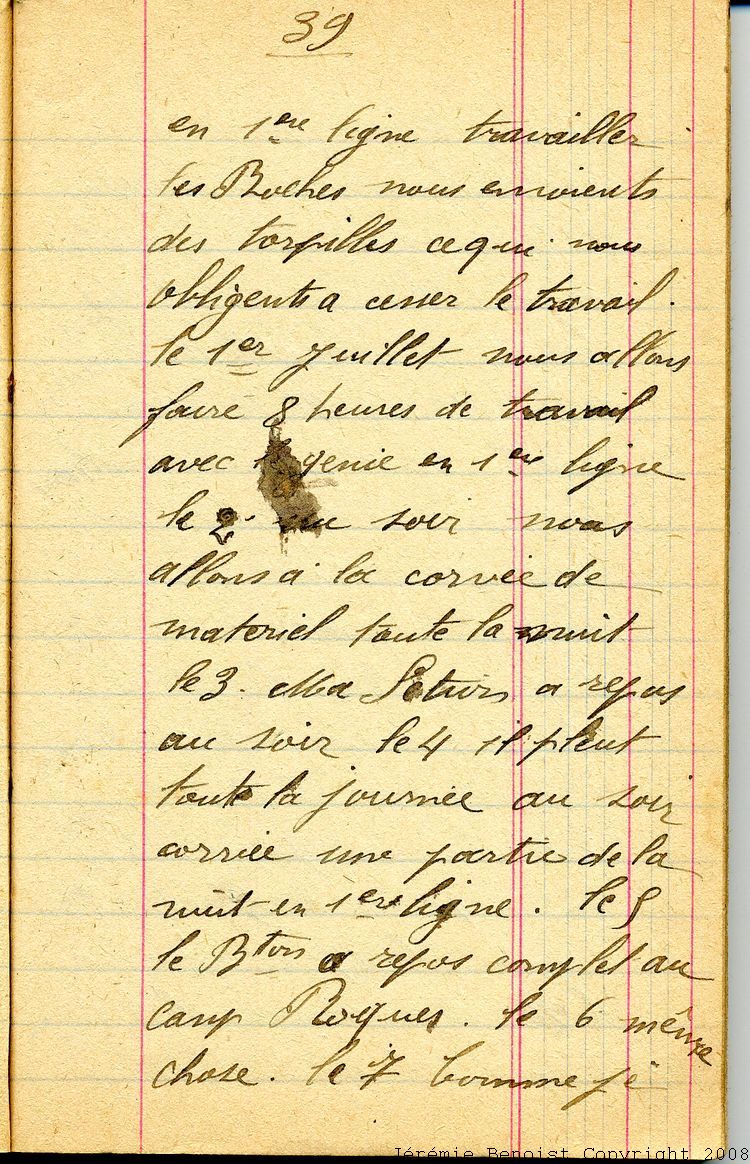 39
en 1ere ligne travailler
les Boches nous envoients
des torpilles ce qui nous
obligents a cesser le travail.
le 1er Juillet nous allons
faire 8 heures de travail
avec genie en 1ere ligne
le 2 au soir nous
allons a la corvée de
materiel toute la nuit
le 3. Ma Son a repos
au soir le 4 il pleut
toute la journée au soir
corvée une partie de la
nuit en 1ere ligne. le 5
le Bton a repos complet au
camp Roques. le 6 même
chose. le 7 comme je
Jérémie Benoist Copyright 2008